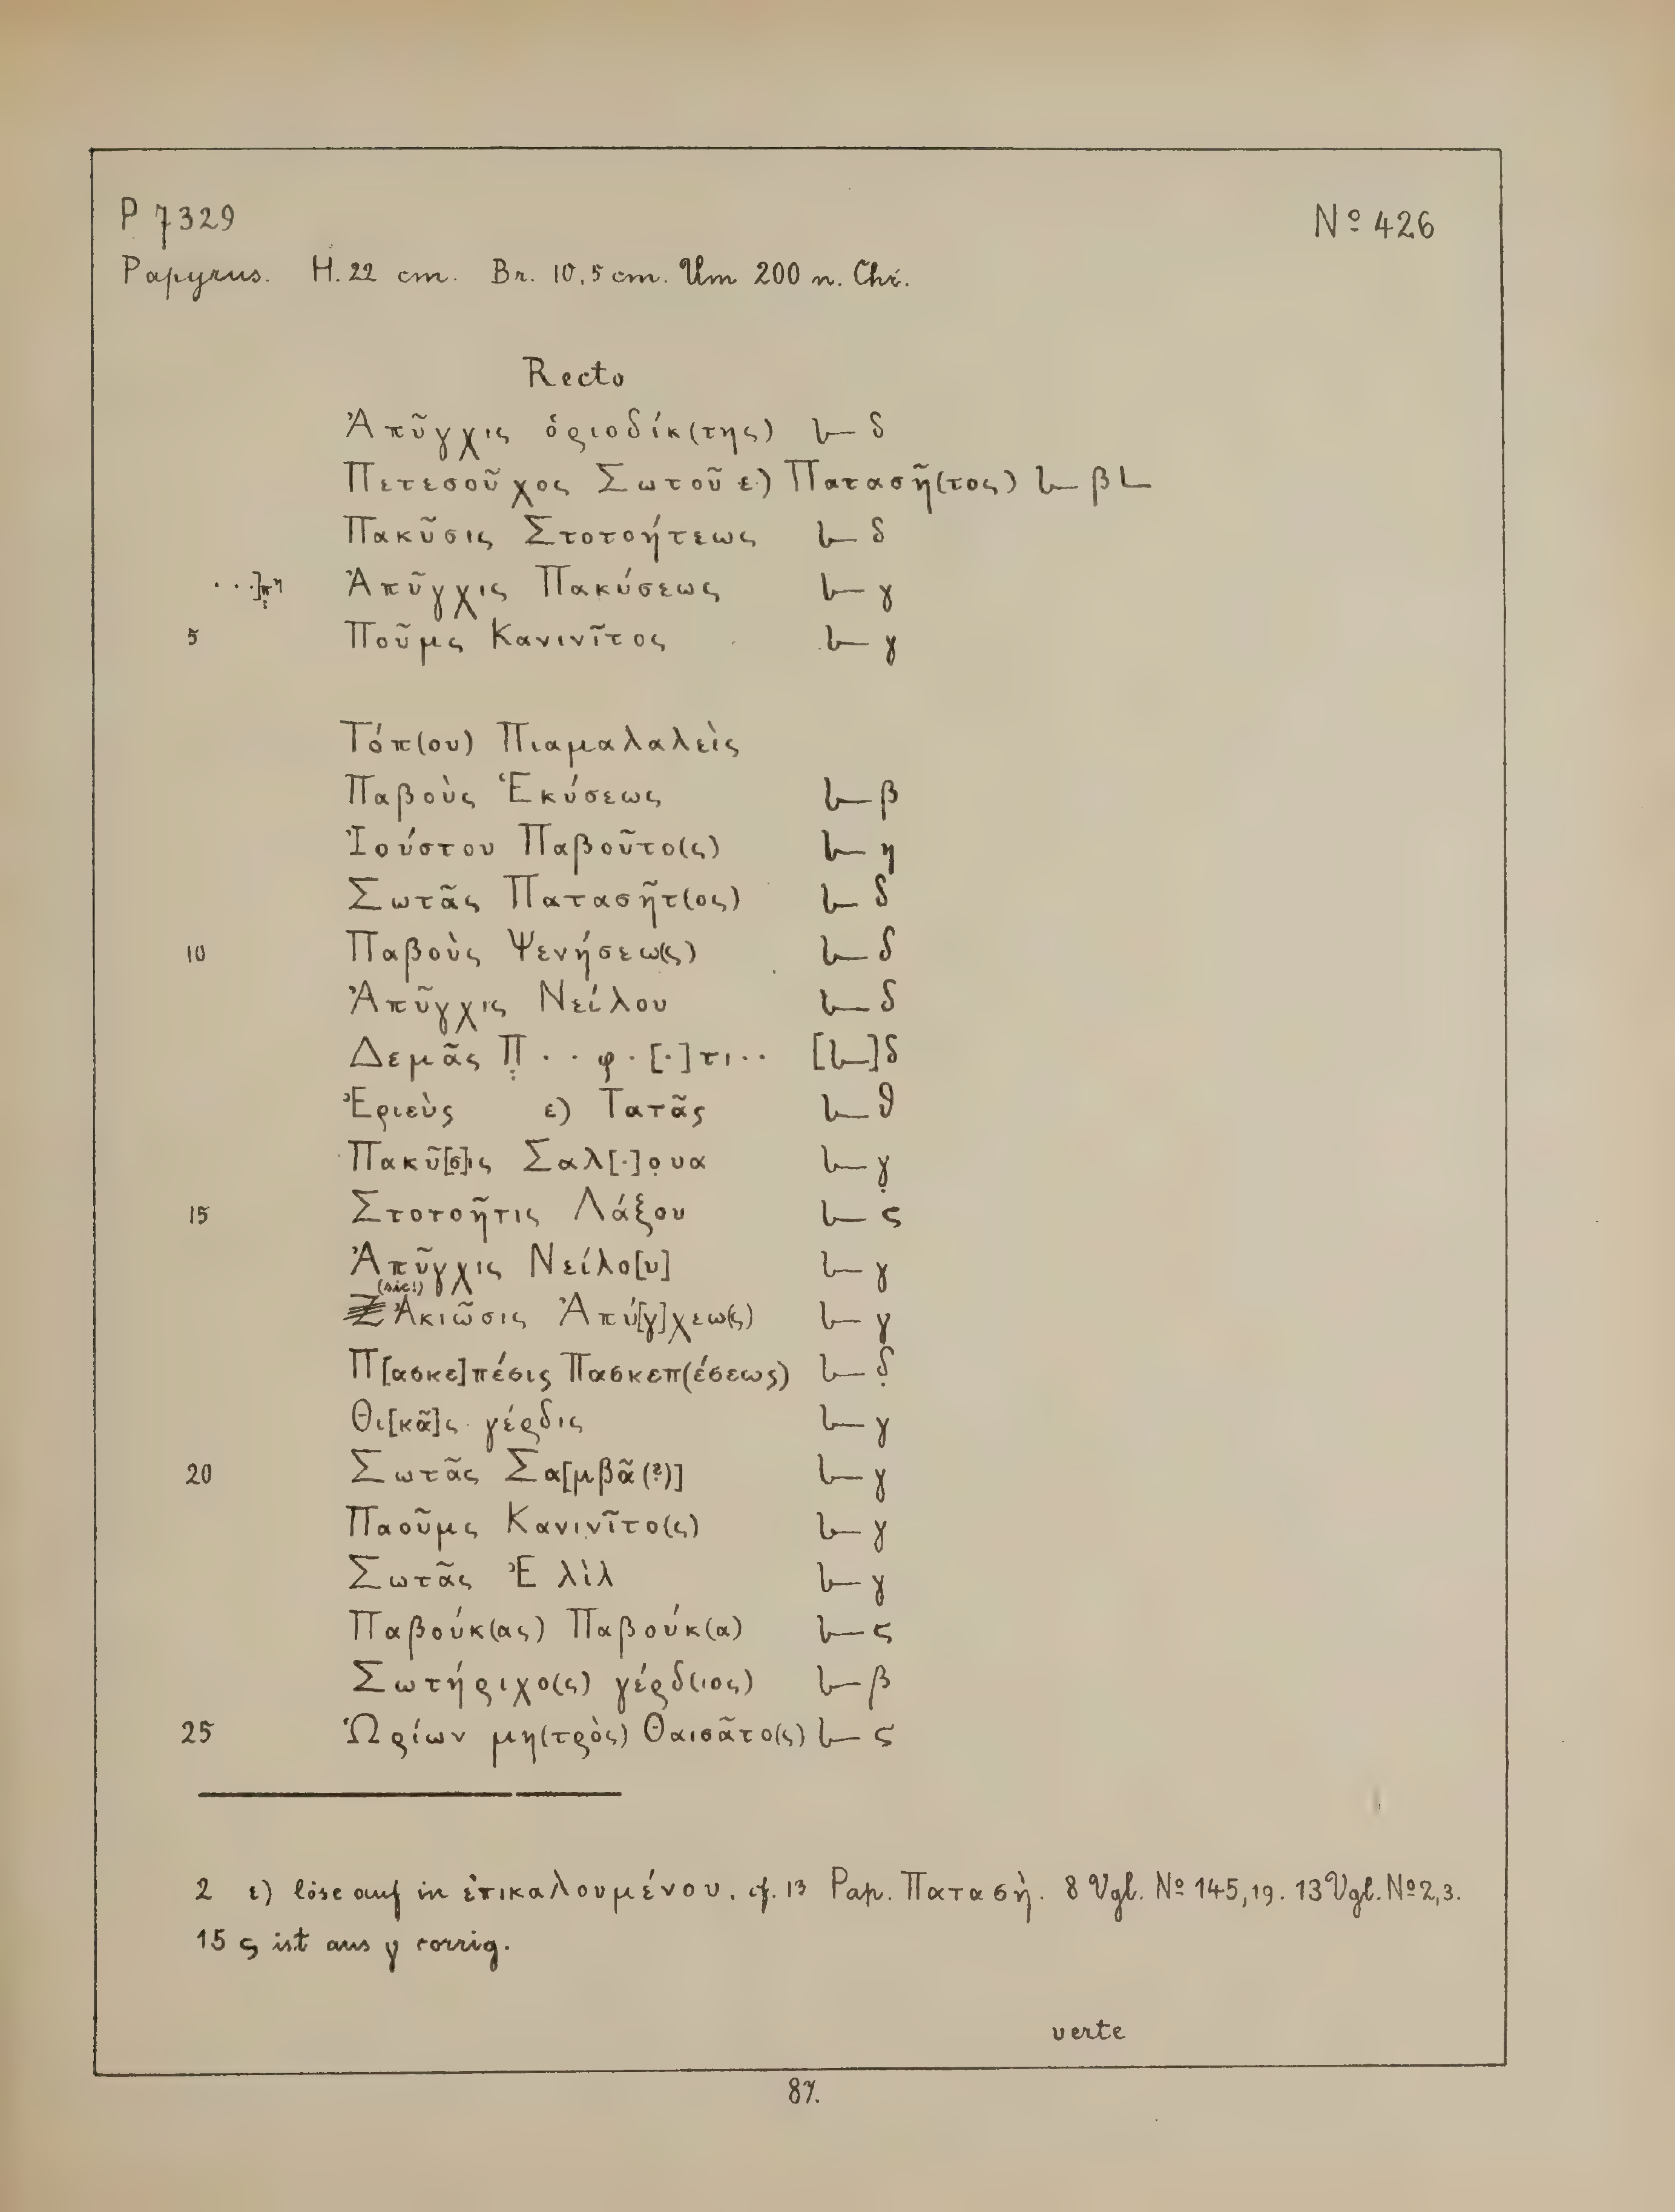 P 7329 Nº 426
Papyrus. H. 22 cm. Br. 10,5 cm. Um 200 n. Chr.
Recto
Ἀπῦγχις ὁριοδίκ(της) 𐅻 δ
Πετεσοῦχος Σωτοῦ ε) Πατασῆ(τος) 𐅻 β L
Πακῦσις Στοτοήτεως 𐅻 δ
. . .]π̣η Ἀπῦγχις Πακύσεως 𐅻 γ
5 Ποῦμς Κανινῖτος 𐅻 γ
Τόπ(ου) Πιαμαλαλεὶς
Παβοὺς Ἑκύσεως 𐅻 β
Ἰούστου Παβοῦτο(ς) 𐅻 η
Σωτᾶς Πατασῆτ(ος) 𐅻 δ
10 Παβοὺς Ψενήσεω(ς) 𐅻 δ
Ἀπῦγχις Νείλου 𐅻 δ
Δεμᾶς Π̣ . . φ . [.]τι . . [𐅻] δ
Ἐριεὺς ε) Τατᾶς 𐅻 θ
Πακῦ[σ]ις Σαλ[.]ο̣υα 𐅻 γ̣
15 Στοτοῆτις Λάξου 𐅻 ς
Ἀπῦγχις Νείλο[υ] 𐅻 γ
(sic!)
Ἀκιῶσις Ἀπύ[γ]χεω(ς) 𐅻 γ
Π[ασκε]πέσις Πασκεπ(έσεως) 𐅻 δ̣
Θι[κᾶ]ς γέρδις 𐅻 γ
20 Σωτᾶς Σα[μβᾶ(?)] 𐅻 γ
Παοῦμς Κανινῖτο(ς) 𐅻 γ
Σωτᾶς Ἐ λὶλ 𐅻 γ
Παβούκ(ας) Παβούκ(α) 𐅻 ς
Σωτήριχο(ς) γέρδ(ιος) 𐅻 β
25 Ὡρίων μη(τρὸς) Θαισᾶτο(ς) 𐅻 ς
2 ε) löse auf in ἐπικαλουμένου. cf. 13 Pap. Πατασὴ. 8 Vgl. Nº 145,19. 13 Vgl. Nº 2,3.
15 ς ist aus γ corrig.
verte
87.